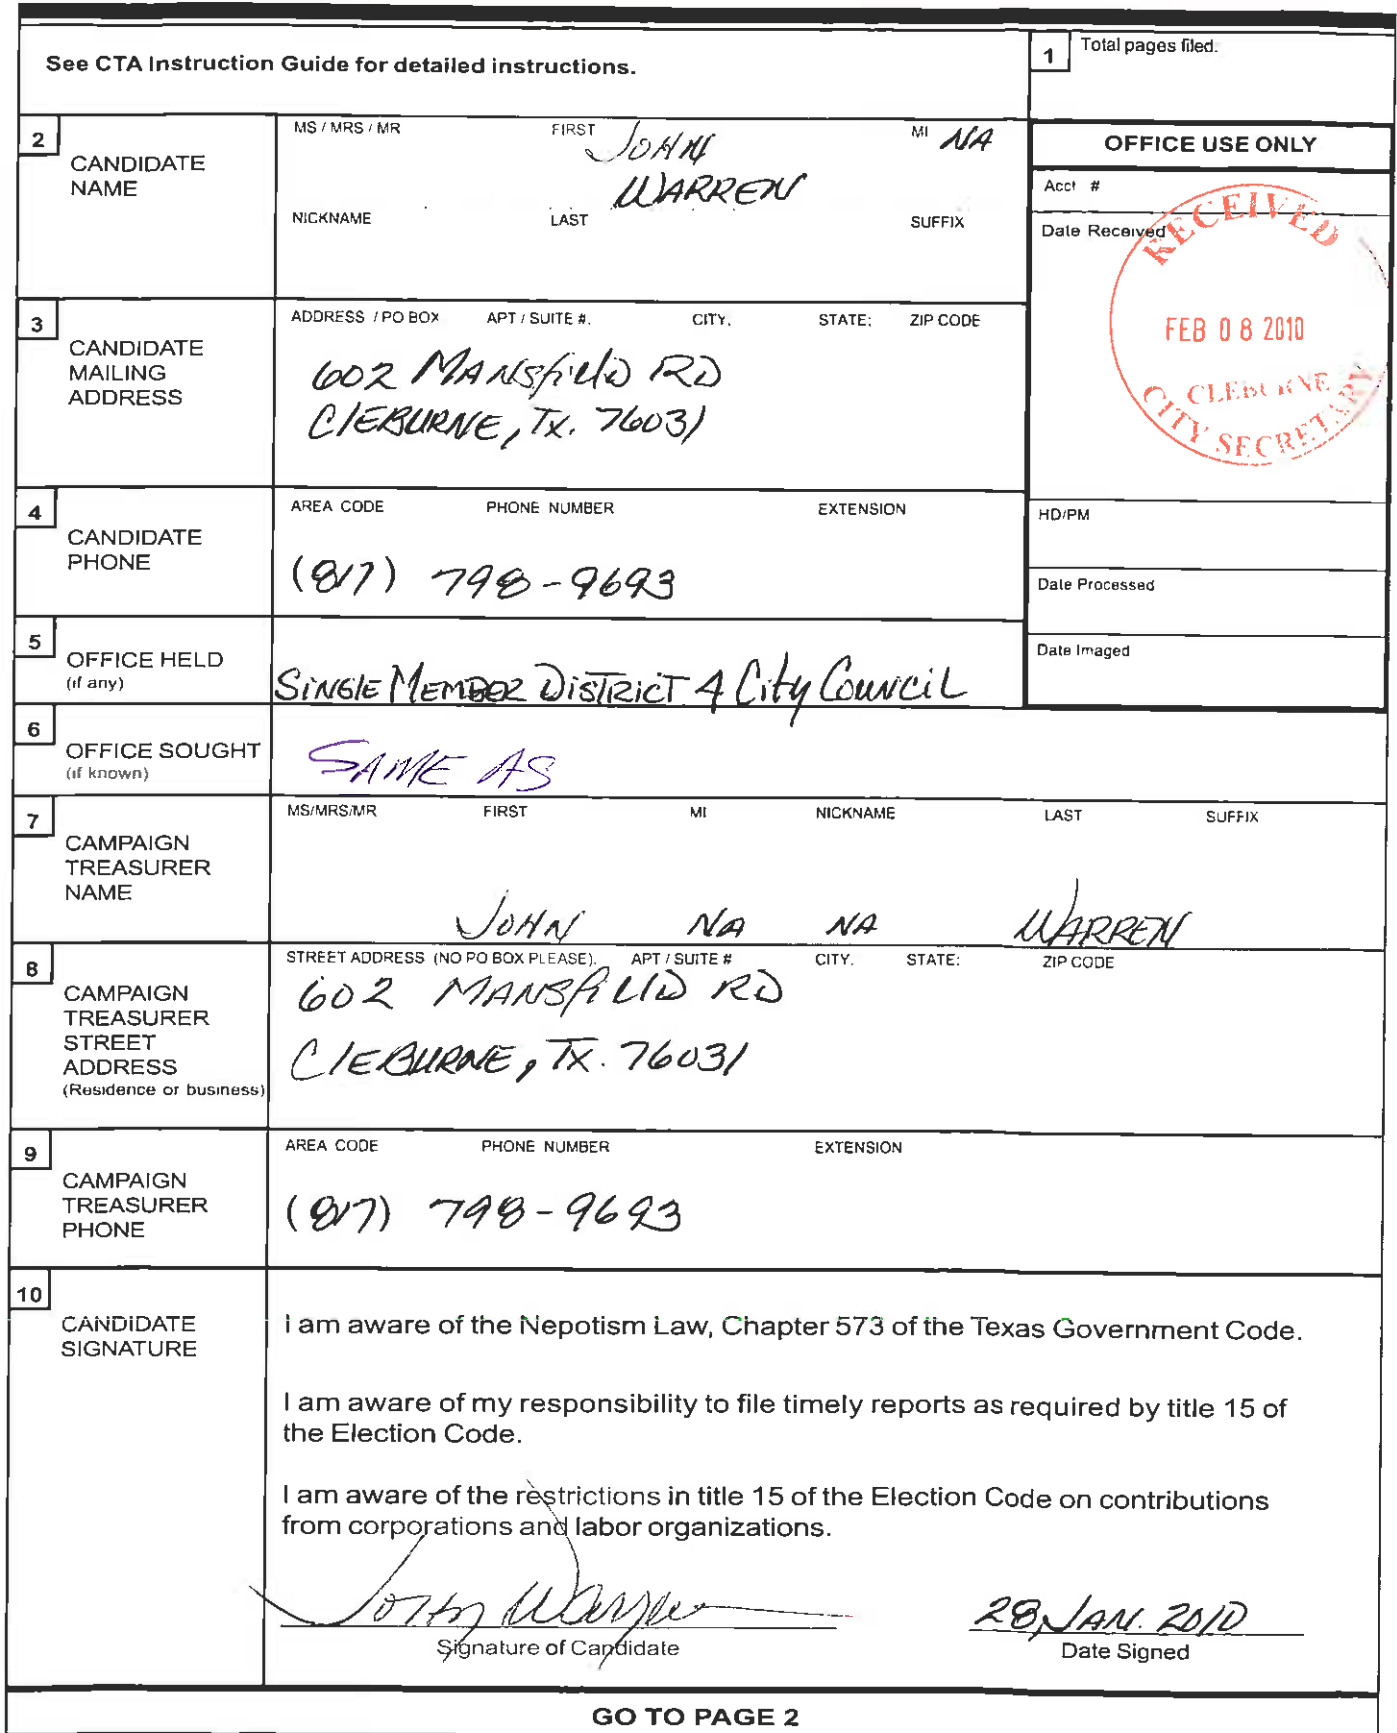 See CTA Instruction Guide for detailed instructions.
1 Total pages filed:
2 CANDIDATE NAME
MS / MRS / MR FIRST MI
JOHN NA
WARREN
NICKNAME LAST SUFFIX
OFFICE USE ONLY
Acct #
Date Received
RECEIVED
FEB 08 2010
CLEBURNE
CITY SECRETARY
3 CANDIDATE MAILING ADDRESS
ADDRESS / PO BOX APT / SUITE #. CITY. STATE; ZIP CODE
602 MANSfiElD RD
ClEBURNE, Tx. 76031
4 CANDIDATE PHONE
AREA CODE PHONE NUMBER EXTENSION
(817) 798-9693
HD/PM
Date Processed
Date Imaged
5 OFFICE HELD
(if any)
SiNGlE MEMBER DiSTRicT 4 City CouNCiL
6 OFFICE SOUGHT
(if known)
SAME AS
7 CAMPAIGN TREASURER NAME
MS/MRS/MR FIRST MI NICKNAME LAST SUFFIX
JOHN NA NA WARREN
8 CAMPAIGN TREASURER STREET ADDRESS
(Residence or business)
STREET ADDRESS (NO PO BOX PLEASE). APT / SUITE # CITY. STATE: ZIP CODE
602 MANSfiElD RD
ClEBURNE, TX. 76031
9 CAMPAIGN TREASURER PHONE
AREA CODE PHONE NUMBER EXTENSION
(817) 798-9693
10 CANDIDATE SIGNATURE
I am aware of the Nepotism Law, Chapter 573 of the Texas Government Code.
I am aware of my responsibility to file timely reports as required by title 15 of
the Election Code.
I am aware of the restrictions in title 15 of the Election Code on contributions
from corporations and labor organizations.
John Warren 28 JAN. 2010
Signature of Candidate Date Signed
GO TO PAGE 2